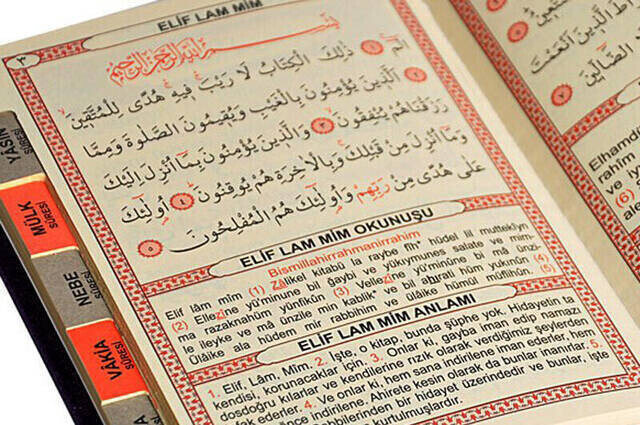 ELİF LAM MİM
٣
بسم الله الرحمن الرحيم
الٓمٓ ﴿١﴾ ذٰلِكَ الْكِتَابُ لَا رَيْبَ فِيهِ هُدًى لِلْمُتَّقِينَ ﴿٢﴾
اَلَّذِينَ يُؤْمِنُونَ بِالْغَيْبِ وَيُقِيمُونَ الصَّلٰوةَ وَمِمَّا
رَزَقْنَاهُمْ يُنْفِقُونَ ﴿٣﴾ وَالَّذِينَ يُؤْمِنُونَ بِمَٓا اُنْزِلَ اِلَيْكَ
وَمَٓا اُنْزِلَ مِنْ قَبْلِكَ وَبِالْاٰخِرَةِ هُمْ يُوقِنُونَ ﴿٤﴾ اُولٰٓئِكَ
عَلٰى هُدًى مِنْ رَبِّهِمْ وَاُولٰٓئِكَ هُمُ الْمُفْلِحُونَ ﴿٥﴾
ELİF LAM MİM OKUNUŞU
Bismillahirrahmanirrahim
Elif lâm mîm (1) Zâlikel kitâbü la raybe fîh* hüdel lil muttekîyn
(2) Ellezîne yü'minune bil ğaybi ve yükıymunes salate ve mim-
ma razaknâhüm yünfikûn (3) Vellezîne yü'minûne bi mâ ünzi-
le ileyke ve mâ ünzile min kablik* ve bil ahırati hüm yukınûn (4)
Ülâike ala hüdem mir rabbihim ve ülâike hümül müflihûn. (5)
ELİF LAM MİM ANLAMI
1. Elif, Lâm, Mîm. 2. İşte, o kitap, bunda şüphe yok. Hidayetin ta
kendisi, korunacaklar için. 3. Onlar ki, gayba iman edip namazı
dosdoğru kılarlar ve kendilerine rızık olarak verdiğimiz şeylerden
ederler. 4. Ve onlar ki, hem sana indirilene iman ederler, hem
önce indirilene. Ahirete kesin olarak da bunlar inanırlar. 5.
Rabbilerinden bir hidayet üzerindedir ve bunlar, işte
kurtulmuşlardır.
YASİN
SÛRESİ
MÜLK
SÛRESİ
NEBE
SÛRESİ
VAKİA
SÛRESİ
الَّذِينَ اَنْعَمْتَ
الضَّٓالِّينَ
Elhamd
rahîm
(6)